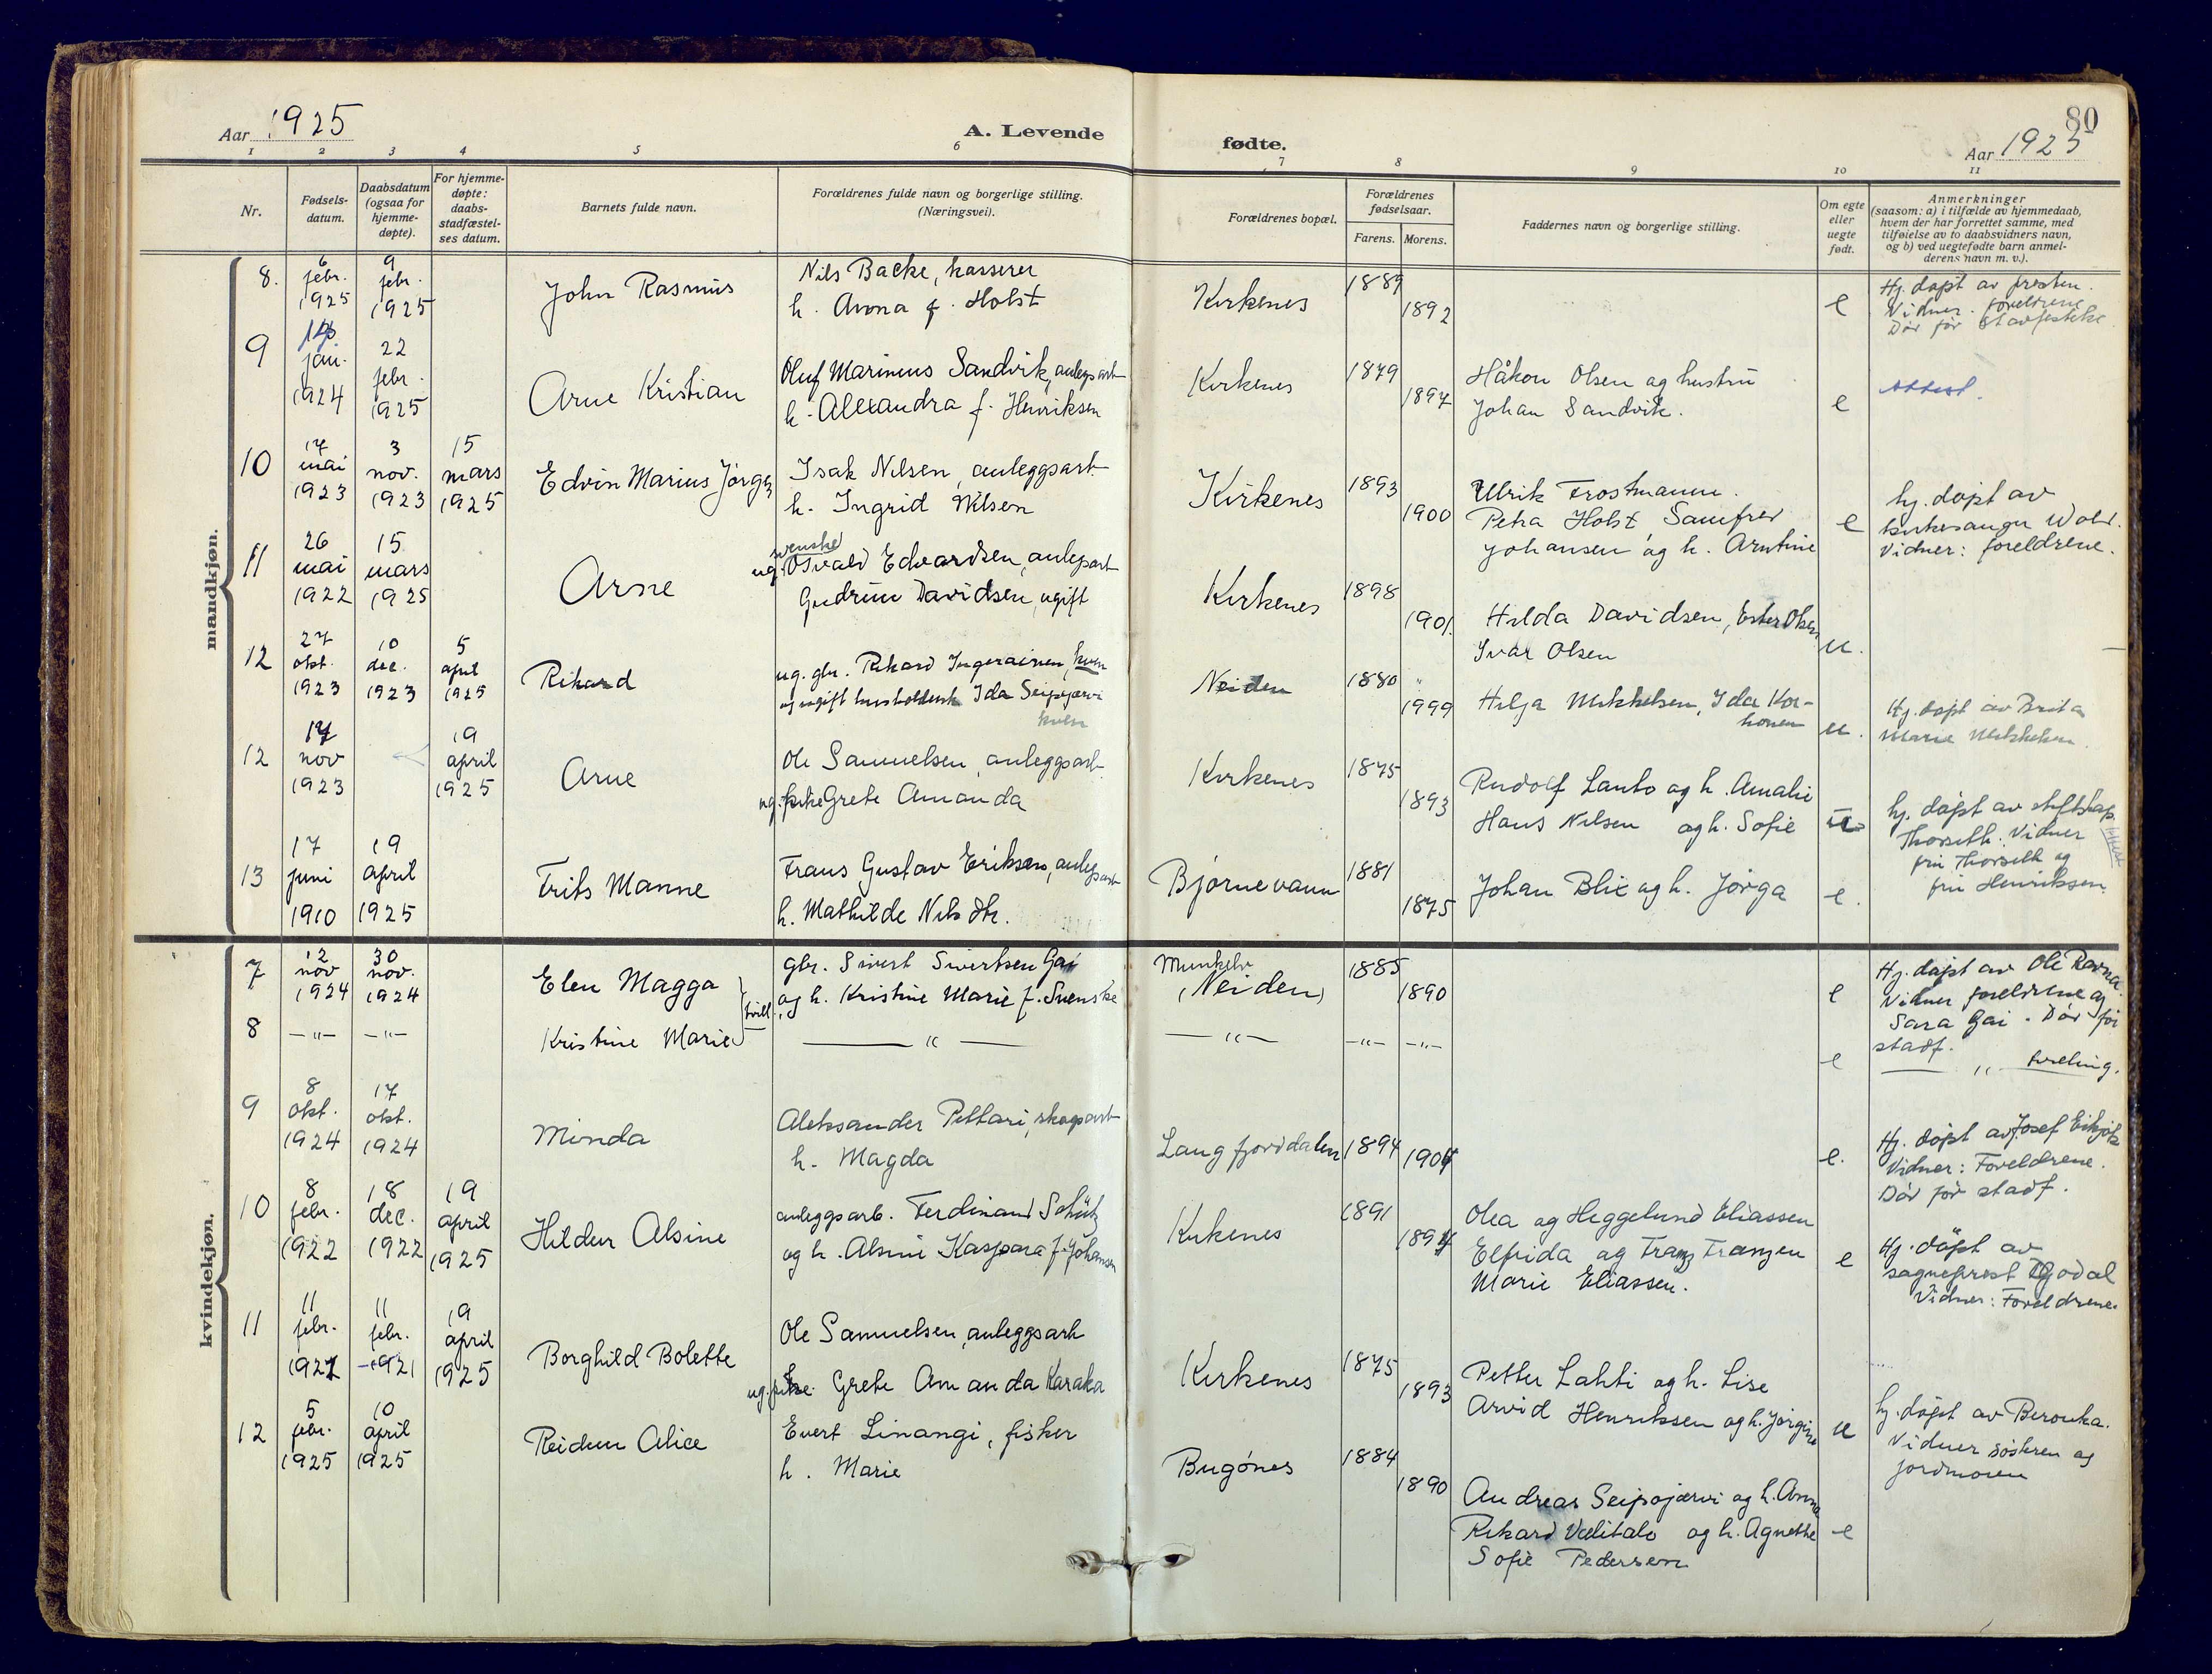 Aar 1925
A. Levende
fødte.
80
Aar 1925
1 2 3 4 5 6 7 8 9 10 11
Nr.
Fødsels-
datum.
Daabsdatum
(ogsaa for
hjemme-
døpte).
For hjemme-
døpte:
daabs-
stadfæstel-
ses datum.
Barnets fulde navn.
Forældrenes fulde navn og borgerlige stilling.
(Næringsvei).
Forældrenes bopæl.
Forældrenes
fødselsaar.
Farens. Morens.
Faddernes navn og borgerlige stilling.
Om egte
eller
uegte
født.
Anmerkninger
(saasom: a) i tilfælde av hjemmedaab,
hvem der har forrettet samme, med
tilføielse av to daabsvidners navn,
og b) ved uegtefødte barn anmel-
derens navn m. v.).
mandkjøn.
8.
6
febr.
1925
9
febr.
1925
John Rasmus
Nils Backe, kasserer
h. Anna f. Holst
Kirkenes
1889
1892
e
Hj. døpt av presten.
Vidner. foreldrene
Død før
9
jan.
1924
22
febr.
1925
Arne Kristian
Oluf Marinius Sandvik, anlegsarb
h. Alexandra f. Henriksen
Kirkenes
1879
1897
Håkon Olsen og hustru
Johan Sandvik.
e
Attest.
10
17
mai
1923
3
nov.
1923
15
mars
1925
Edvin Marius Jørgen
Isak Nilsen, anleggsarb
h. Ingrid Nilsen
Kirkenes
1893
1900
Ulrik Frostmann.
Petra Holst Samfrid
Johansen og h. Arntine
e
hj. døpt av
kirkesanger Wold.
Vidner: foreldrene.
11
26
mai
1922
15
mars
1925
Arne
svenske
ug. Osvald Edvardsen, anlegsarb
Gudrun Davidsen, ugift
Kirkenes
1898
1901.
Hilda Davidsen, Ester Olsen
Ivar Olsen
u.
12
27
okt.
1923
10
dec.
1923
5
april
1925
Rikard
ug. gbr. Rikard Ingerainen, kven
og ugift Ida Seipajærvi
kven
Neiden
1880
1999
Hilja Mikkelsen, Ida Kor-
honen
u.
Hj. døpt av Brita
Marie Mikkelsen.
12
17
nov
1923
19
april
1925
Arne
Ole Samuelsen, anleggsarb.
ug. pike Grete Amanda
Kirkenes
1875
1893
Rudolf Lanto og h. Amalie
Hans Nilsen og h. Sofie
u
hj. døpt av stiftskap.
Thorseth. Vidner
fru Thorseth og
fru Henriksen.
13
17
juni
1910
19
april
1925
Frits Manne
Frans Gustav Eriksen, anlegsarb
h. Mathilde Nilsdtr.
Bjørnevann
1881
1875
Johan Blix og h. Jørga
e.
kvindekjøn.
7
12
nov
1924
30
nov.
1924
Elen Magga
tvill.
gbr. Sivert Sivertsen Gai
og h. Kristine Marie f. Svenske
Munkelv
(Neiden)
1885
1890
e
Hj. døpt av Ole Ravna.
Vidner foreldrene og
Sara Gai. Død før
stadf.
8
— „ — — „ —
Kristine Marie
— „ —
— „ —
— „ — — „ —
e
— „ — tvelling.
9
8
okt.
1924
17
okt.
1924
Minda
Aleksander Pettari, skogsarb
h. Magda
Langfjorddalen
1894
1904
e.
Hj. døpt av Josef Eikjok
Vidner: Foreldrene.
Død før stadf.
10
8
febr.
1922
18
dec.
1922
19
april
1925
Hildur Alsine
anleggsarb. Ferdinand Schütz
og h. Alsine Kaspara f. Johansen
Kirkenes
1891
1894
Olea og Heggelund Eliassen
Elfrida og Franz Franzen
Marie Eliassen.
e
Hj. døpt av
sogneprest Godal
Vidner: Foreldrene.
11
11
febr.
1921
11
febr.
1921
19
april
1925
Borghild Bolette
Ole Samuelsen, anleggsarb
ug. pike Grete Amanda Karaka
Kirkenes
1875
1893
Petter Lahti og h. Lise
Arvid Henriksen og h. Jørgine
u
hj. døpt av Beronka.
Vidner søsteren og
jordmoren
12
5
febr.
1925
10
april
1925
Reidun Alice
Evert Linangi, fisker
h. Marie
Bugønes
1884
1890
Andreas Seipajærvi og h. Anna
Rikard Välitalo og h. Agnethe
Sofie Pedersen
e